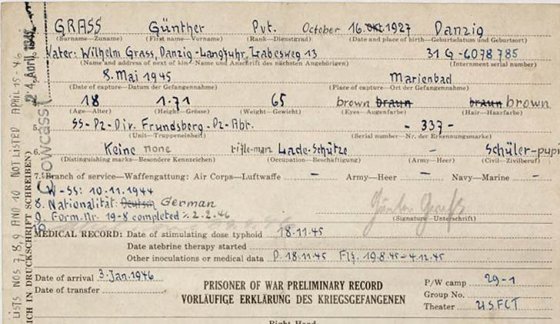 GRASS Günther Pvt. October 16. Okt. 1927 Danzig
(Surname—Zuname) (First name—Vorname) (Rank—Dienstgrad) (Date and place of birth—Geburtsdatum und Geburtsort)
Vater: Wilhelm Grass, Danzig-Langfuhr, Labesweg 13 31 G-6078785
(Name and address of next of kin—Name und Anschrift des nächsten Angehörigen) (Internment serial number)
8. Mai 1945 Marienbad
(Date of capture—Datum der Gefangennahme) (Place of capture—Ort der Gefangennahme)
18 1.71 65 brown braun braun brown
(Age—Alter) (Height—Grösse) (Weight—Gewicht) (Eyes—Augenfarbe) (Hair—Haarfarbe)
SS-Pz-Div. Frundsberg-Pz-Abt. - 337 -
(Serial number—Nr. der Erkennungsmarke)
Keine none rifle-man Lade-Schütze Schüler-pupi
(Distinguishing marks—Besondere Kennzeichen) (Occupation—Beschäftigung) (Army—Heer) (Civil—Zivilberuf)
7. Branch of service—Waffengattung: Air Corps—Luftwaffe — Army—Heer — Navy—Marine -
W-SS: 10.11.1944
8. Nationalität: Deutsch German
9. Form. Nr. 19-8 completed 2.2.46
(Signature—Unterschrift)
MEDICAL RECORD: Date of stimulating dose typhoid 18.11.45
Date atebrine therapy started
Other inoculations or medical data P. 18.11.45 Flf. 19.8.45-4.12.45
Date of arrival 3. Jan. 1946
Date of transfer
PRISONER OF WAR PRELIMINARY RECORD
VORLÄUFIGE ERKLÄRUNG DES KRIEGSGEFANGENEN
P/W camp 29-1
Group No.
Theater USFET
Right Hand
24. April 1946
LISTS NOS 7, 8, 9 AND 10 NOT LISTED APRIL 15-46
ICH IN DRUCKSCHRIFT SCHREIBEN)